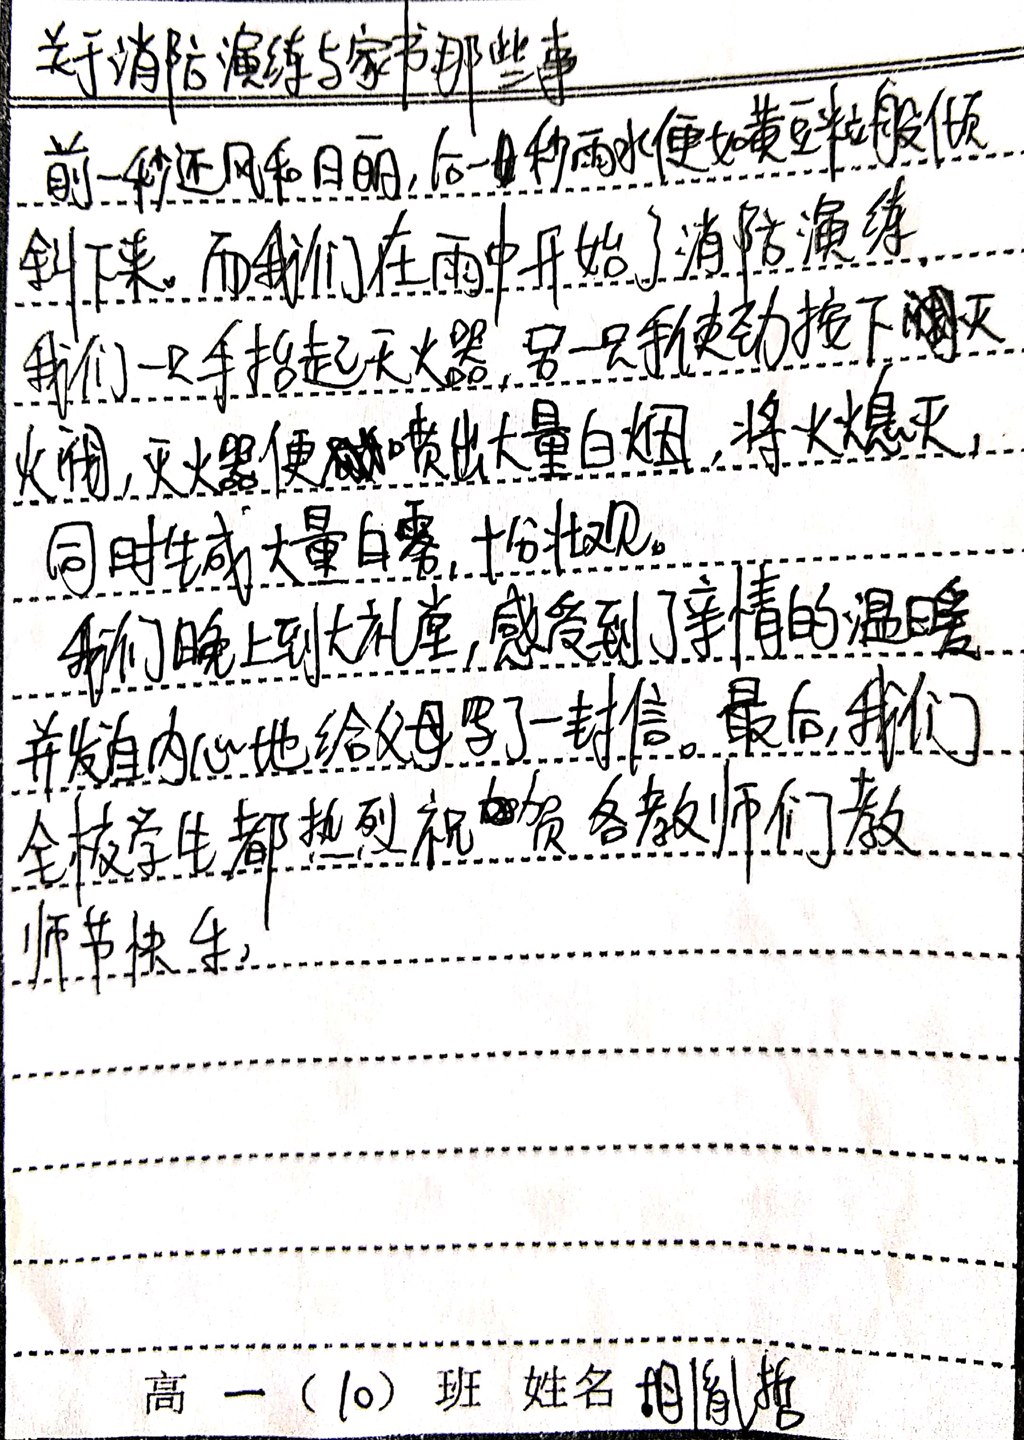 关于消防演练与家书那些事
前一秒还风和日丽,后一秒雨水便如黄豆粒般倾
斜下来。而我们在雨中开始了消防演练.
我们一只手抬起灭火器,另一只手使劲按下灭
火阀,灭火器便喷出大量白烟,将火熄灭,
同时生成大量白雾,十份壮观。
我们晚上到大礼堂,感受到了亲情的温暖
并发自内心地给父母写了一封信。最后,我们
全校学生都热烈祝贺各教师们教
师节快乐,
高一(10)班 姓名 胤哲